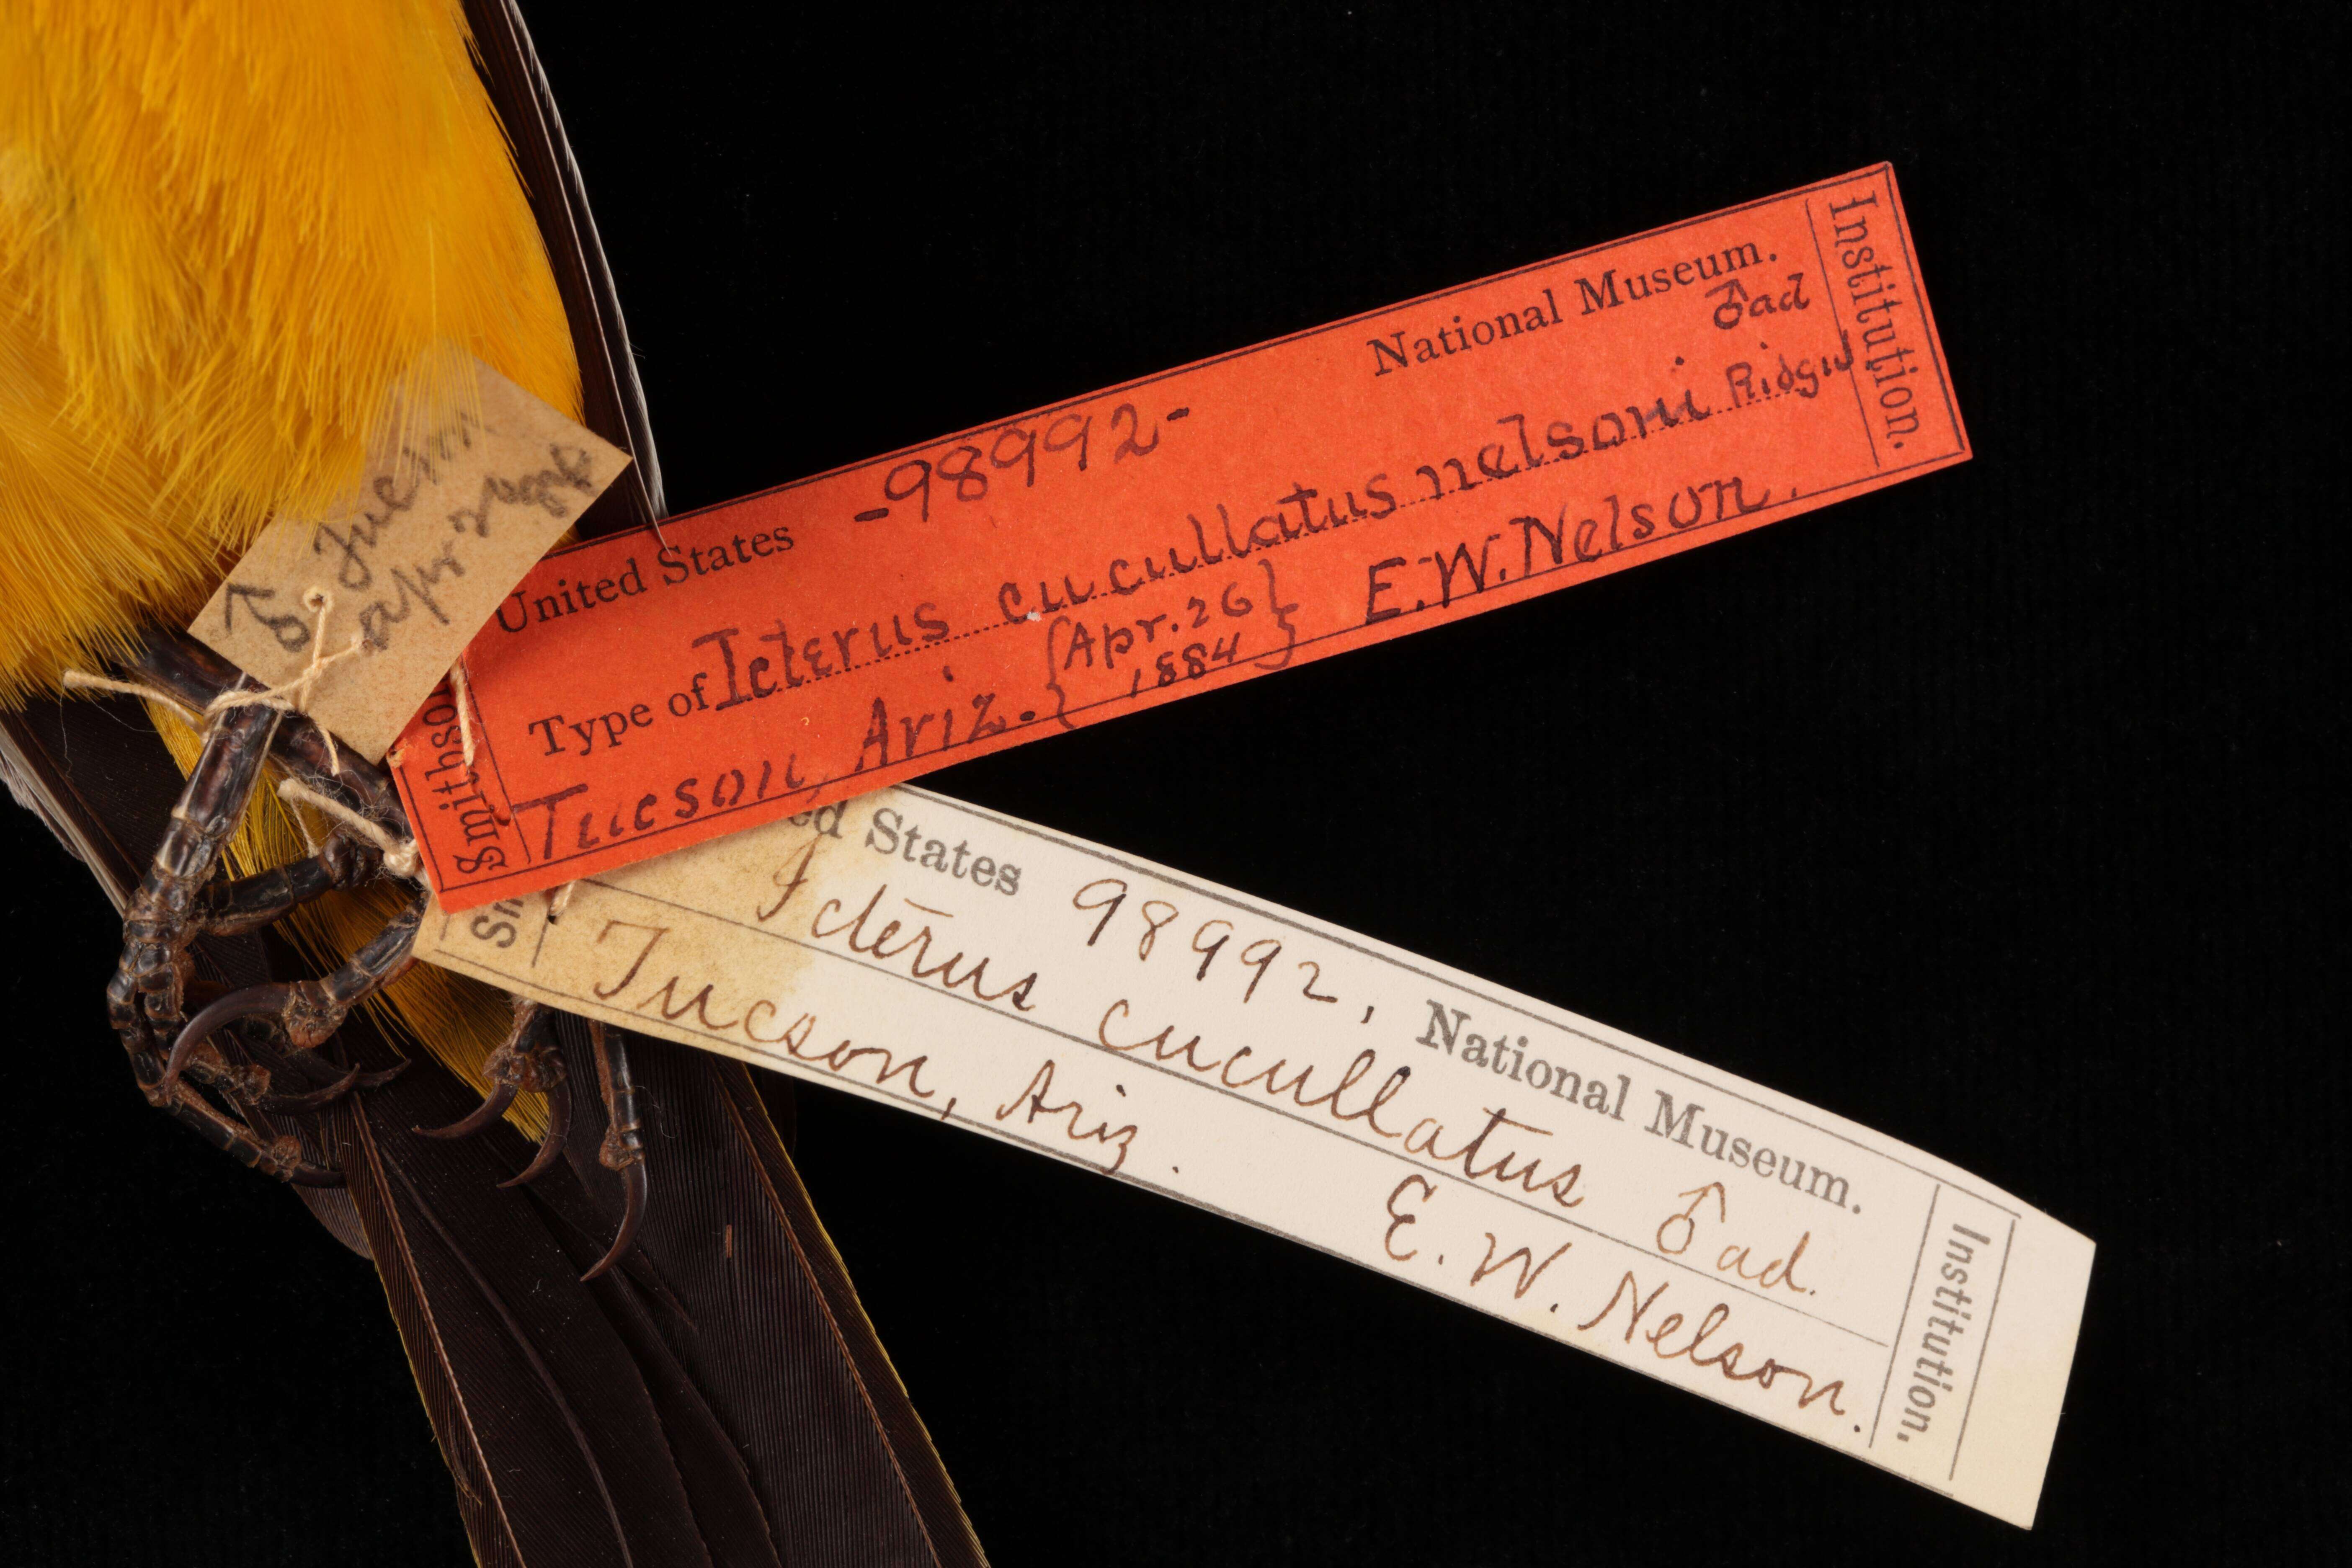 ♂ Tucson
Apr
United States -98992- National Museum.
♂ad
Type of Icterus cucullatus nelsoni Ridgw.
Tucson, Ariz. {Apr. 26 1884} E.W. Nelson.
Smithso
Institution.
ed States 98992, National Museum.
Icterus cucullatus ♂ ad.
Tucson, Ariz. E. W. Nelson.
Sm
Institution.